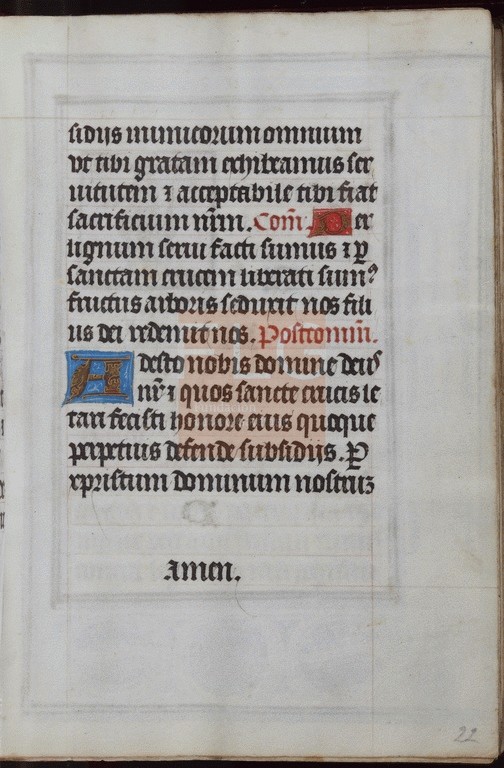 sidiis inimicorum omnium
vt tibi gratam exhibeamus ser
uitutem ⁊ acceptabile tibi fiat
sacrificium nr̄m. Com̄ Per
lignum serui facti sumus ⁊ ꝑ
sanctam crucem liberati sumꝰ
fructus arboris seduxit nos fili
us dei redemit nos. Postcom̄.
Adesto nobis domine deus
nr̄ ⁊ quos sancte crucis le
tari fecisti honore eius quoque
perpetuis defende subsidiis. Per
xpristum dominum nostruꝫ
Amen.
22